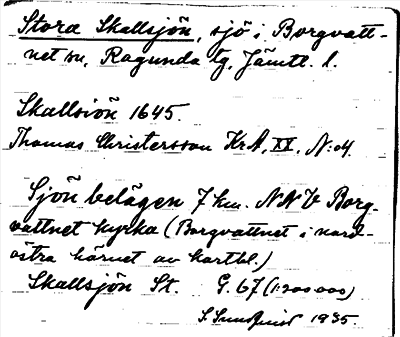 Stora Skallsjön, sjö i Borgvatt-
net sn, Ragunda tg, Jämtl. l.
Skallsiön 1645.
Thomas Christersson KrA, XX, N:o 4.
Sjön belägen 7 km. NNV Borg-
vattnet kyrka (Borgvattnet i nord-
östra hörnet av kartbl.)
Skallsjön St. G. 67 (1:200 000)
S. Sundquist 1935.